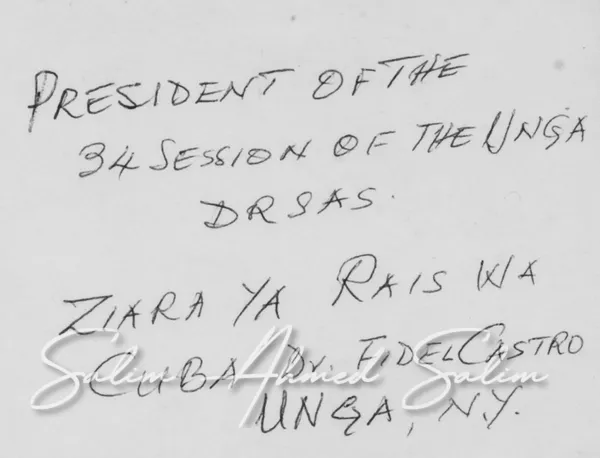 PRESIDENT OF THE
34 SESSION OF THE UNGA
DR SAS.
ZIARA YA RAIS WA
CUBA Dr. FIDEL CASTRO
Salim Ahmed Salim
UNGA, N.Y.